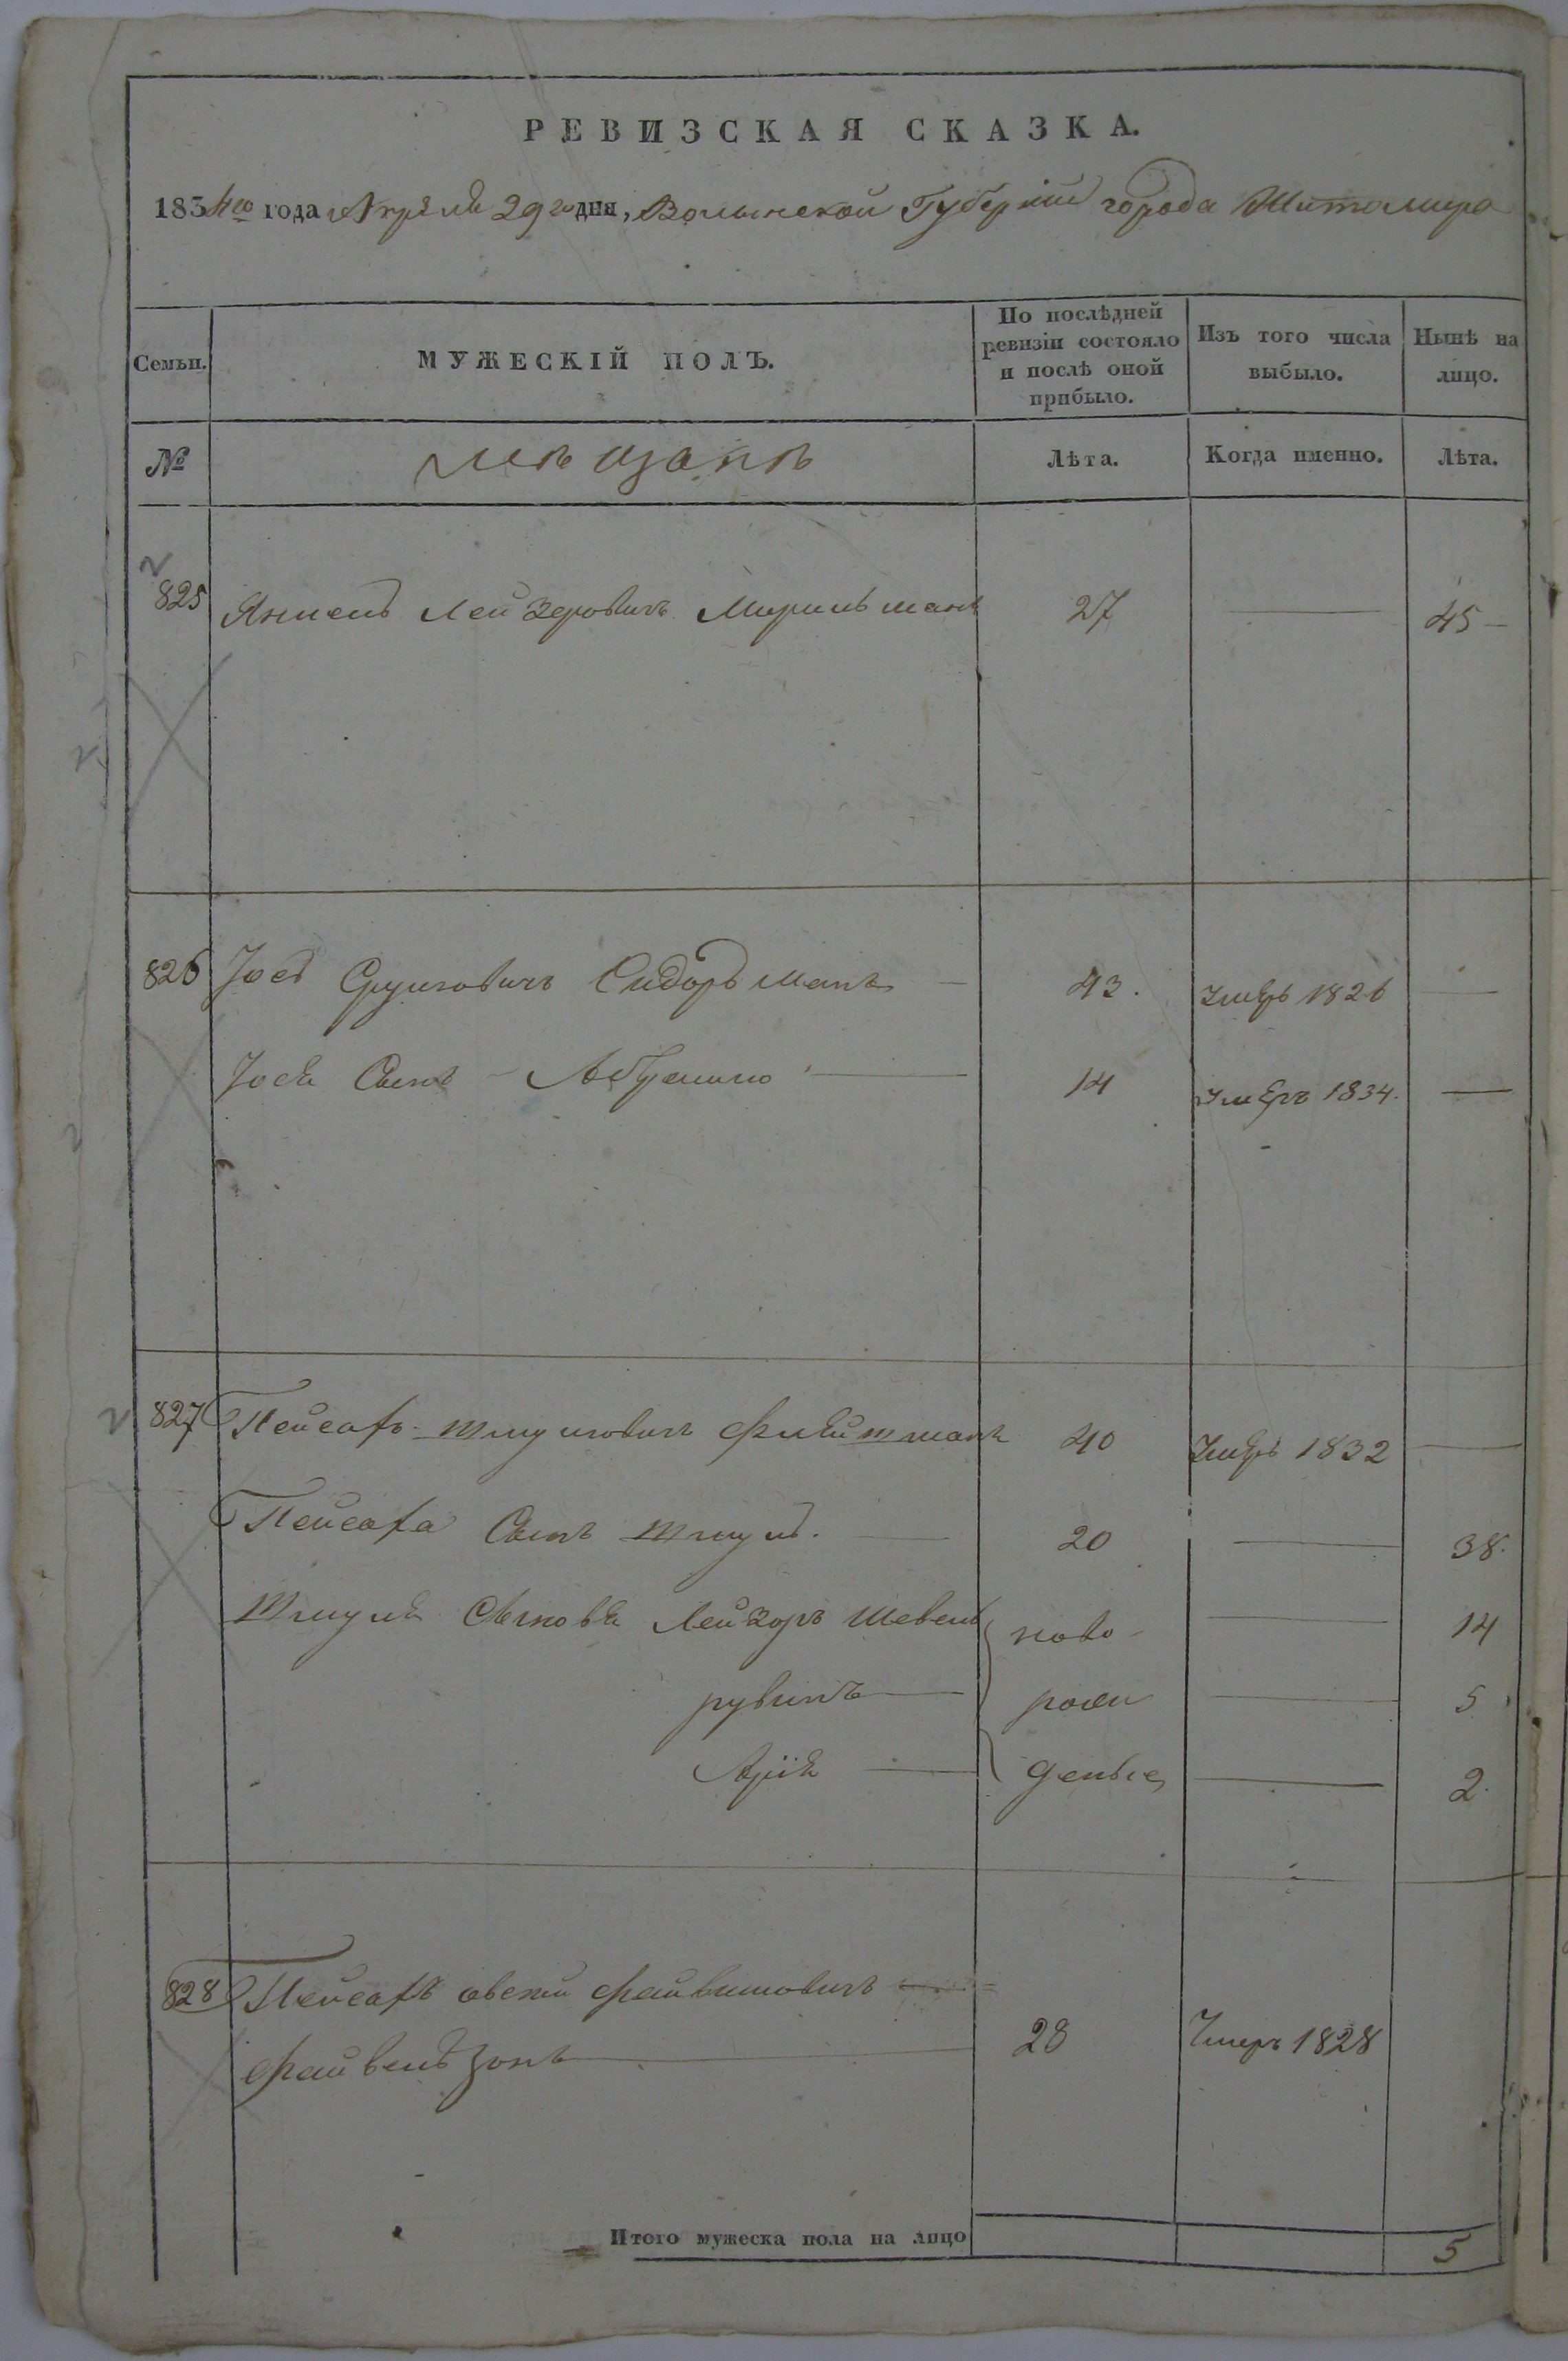 РЕВИЗСКАЯ СКАЗКА.
1834го года Апреля 29го дня, Волынской Губернии города Житомира
Семьи.
МУЖЕСКІЙ ПОЛЪ.
По послѣдней ревизіи состояло и послѣ оной прибыло.
Изъ того числа выбыло.
Нынѣ на лицо.
№
мещанъ
Лѣта.
Когда именно.
Лѣта.
825 Янкель Лейзеровичъ Мирильманъ 27 — 45
826 Иось Срулиовичъ Сидорьманъ — 43. умеръ 1826 —
Иося Сынъ — Абрамъ — 14 умеръ 1834. —
827 Пейсахъ Шмулиовичъ 40 умеръ 1832 —
Пейсаха Сынъ Шмуль. — 20 — 38.
Шмуля Сыновья Лейзоръ Шевель ново — 14
рувинъ — рож — 5
Арія — денные — 2.
828 Пейсахъ Файвишовичъ
Файвельзонъ — 28 Умеръ 1828
Итого мужеска пола на лицо 5